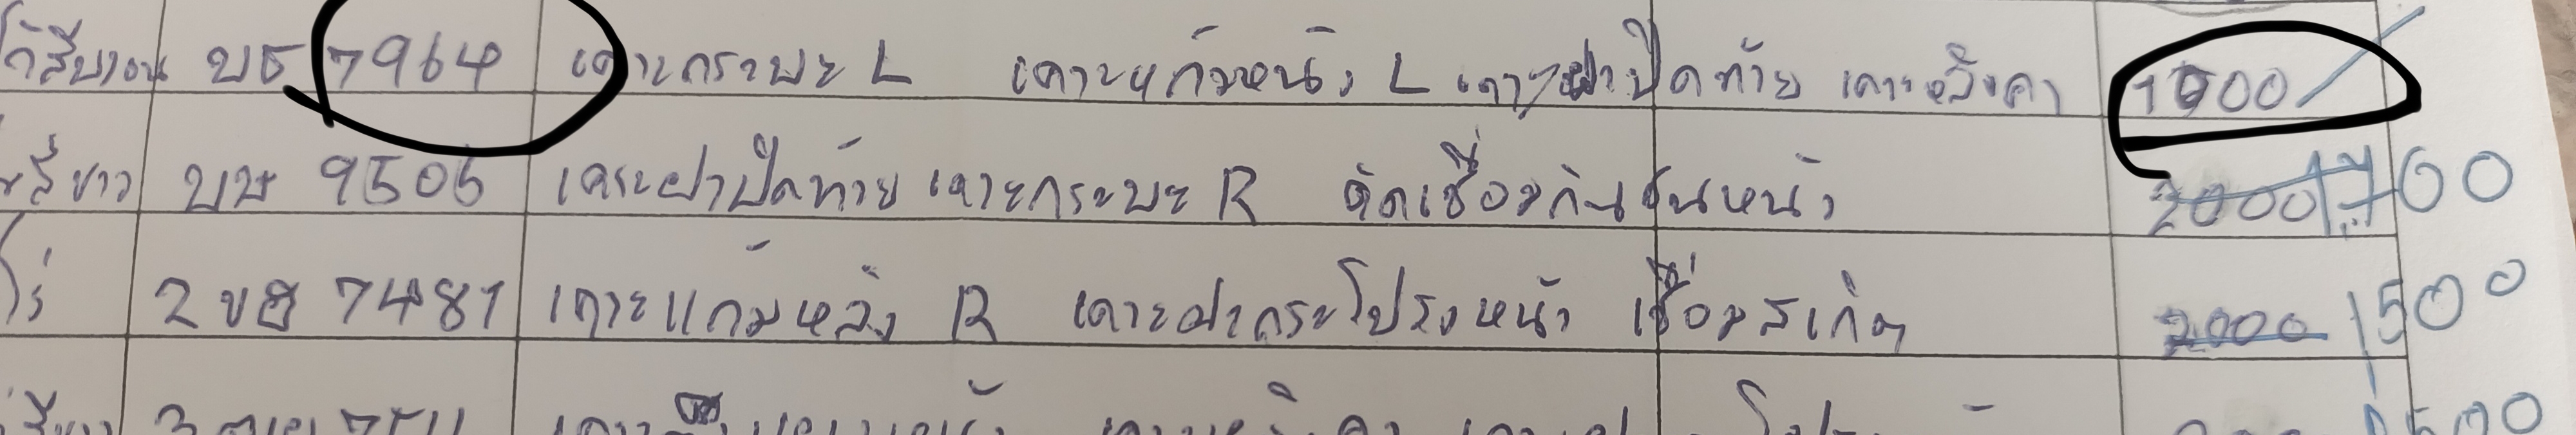 สีบรอน บธ 7964 เคาะกระบะ L เคาะแก้มหน้า L เคาะฝาปิดท้าย เคาะหลังคา 1500/
สีขาว บษ 9505 เคาะฝาปิดท้าย เคาะกระบะ R ตัดเชื่อมกันชนหน้า 2000 1,700
2ขฮ 7487 เคาะแก้มหลัง R เคาะฝากระโปรงหน้า เชื่อมสเกิต 2000 1500